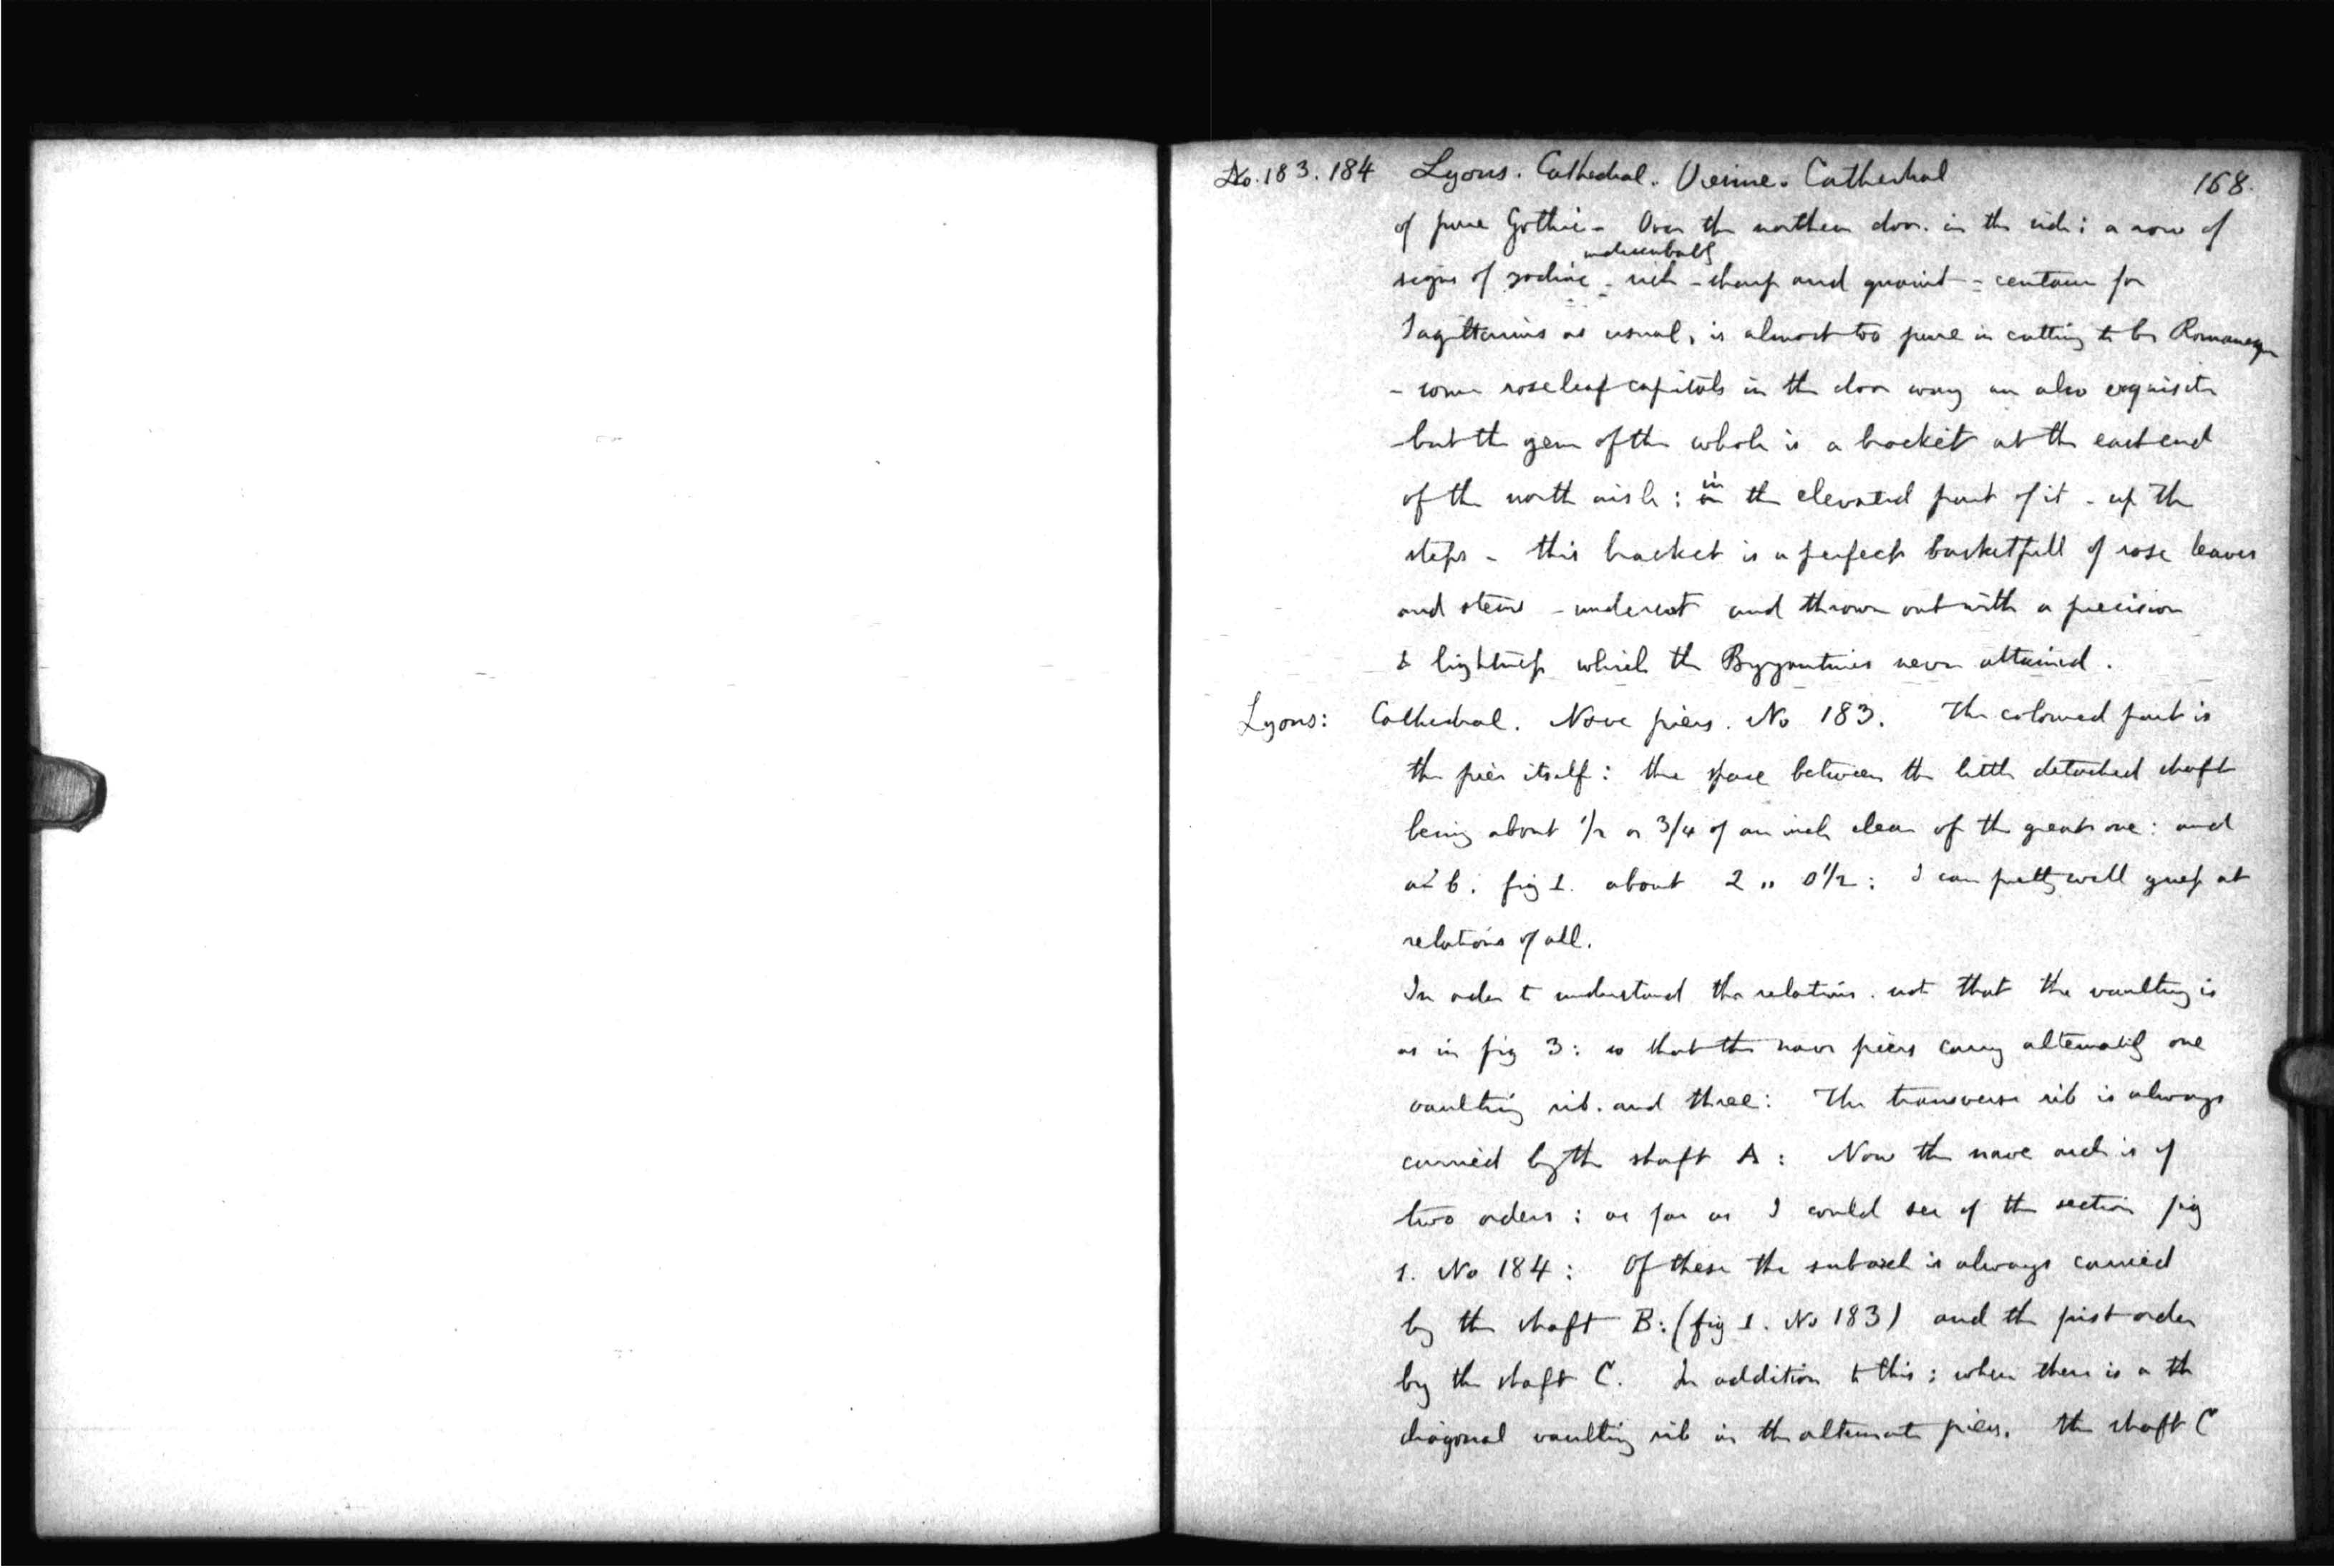 No. 183. 184 Lyons. Cathedral. Vienne. Cathedral 168.
of pure Gothic - Over the northern door. in the side: a row of
undercut
signs of zodiac - rich - sharp and quaint - centaur for
Sagittarius as usual, is almost too pure in cutting to be Romanesque
- some rose leaf capitals in the door way are also exquisite
- but the gem of the whole is a bracket at the east end
in
of the north aisle: on the elevated part of it - up the
steps - this bracket is a perfect basketfull of rose leaves
and stems - undercut and thrown out with a precision
& lightness which the Byzantines never attained.
Lyons: Cathedral. Nave piers. No 183. The coloured part is
the pier itself: the space between the little detached shaft
being about 1/2 or 3/4 of an inch clear of the great one: and
at b. fig 1. about 2 ,, 0 1/2: I can pretty well guess at
relations of all.
In order to understand the relations. note that the vaulting is
as in fig 3: so that the nave piers carry alternately one
vaulting rib. and three: The transverse rib is always
carried by the shaft A: Now the nave arch is of
two orders: as far as I could see of the section fig
1. No 184: Of these the subarch is always carried
by the shaft B: (fig 1. No 183) and the first order
by the shaft C. In addition to this: when there is a th
diagonal vaulting rib in the alternate piers. the shaft C